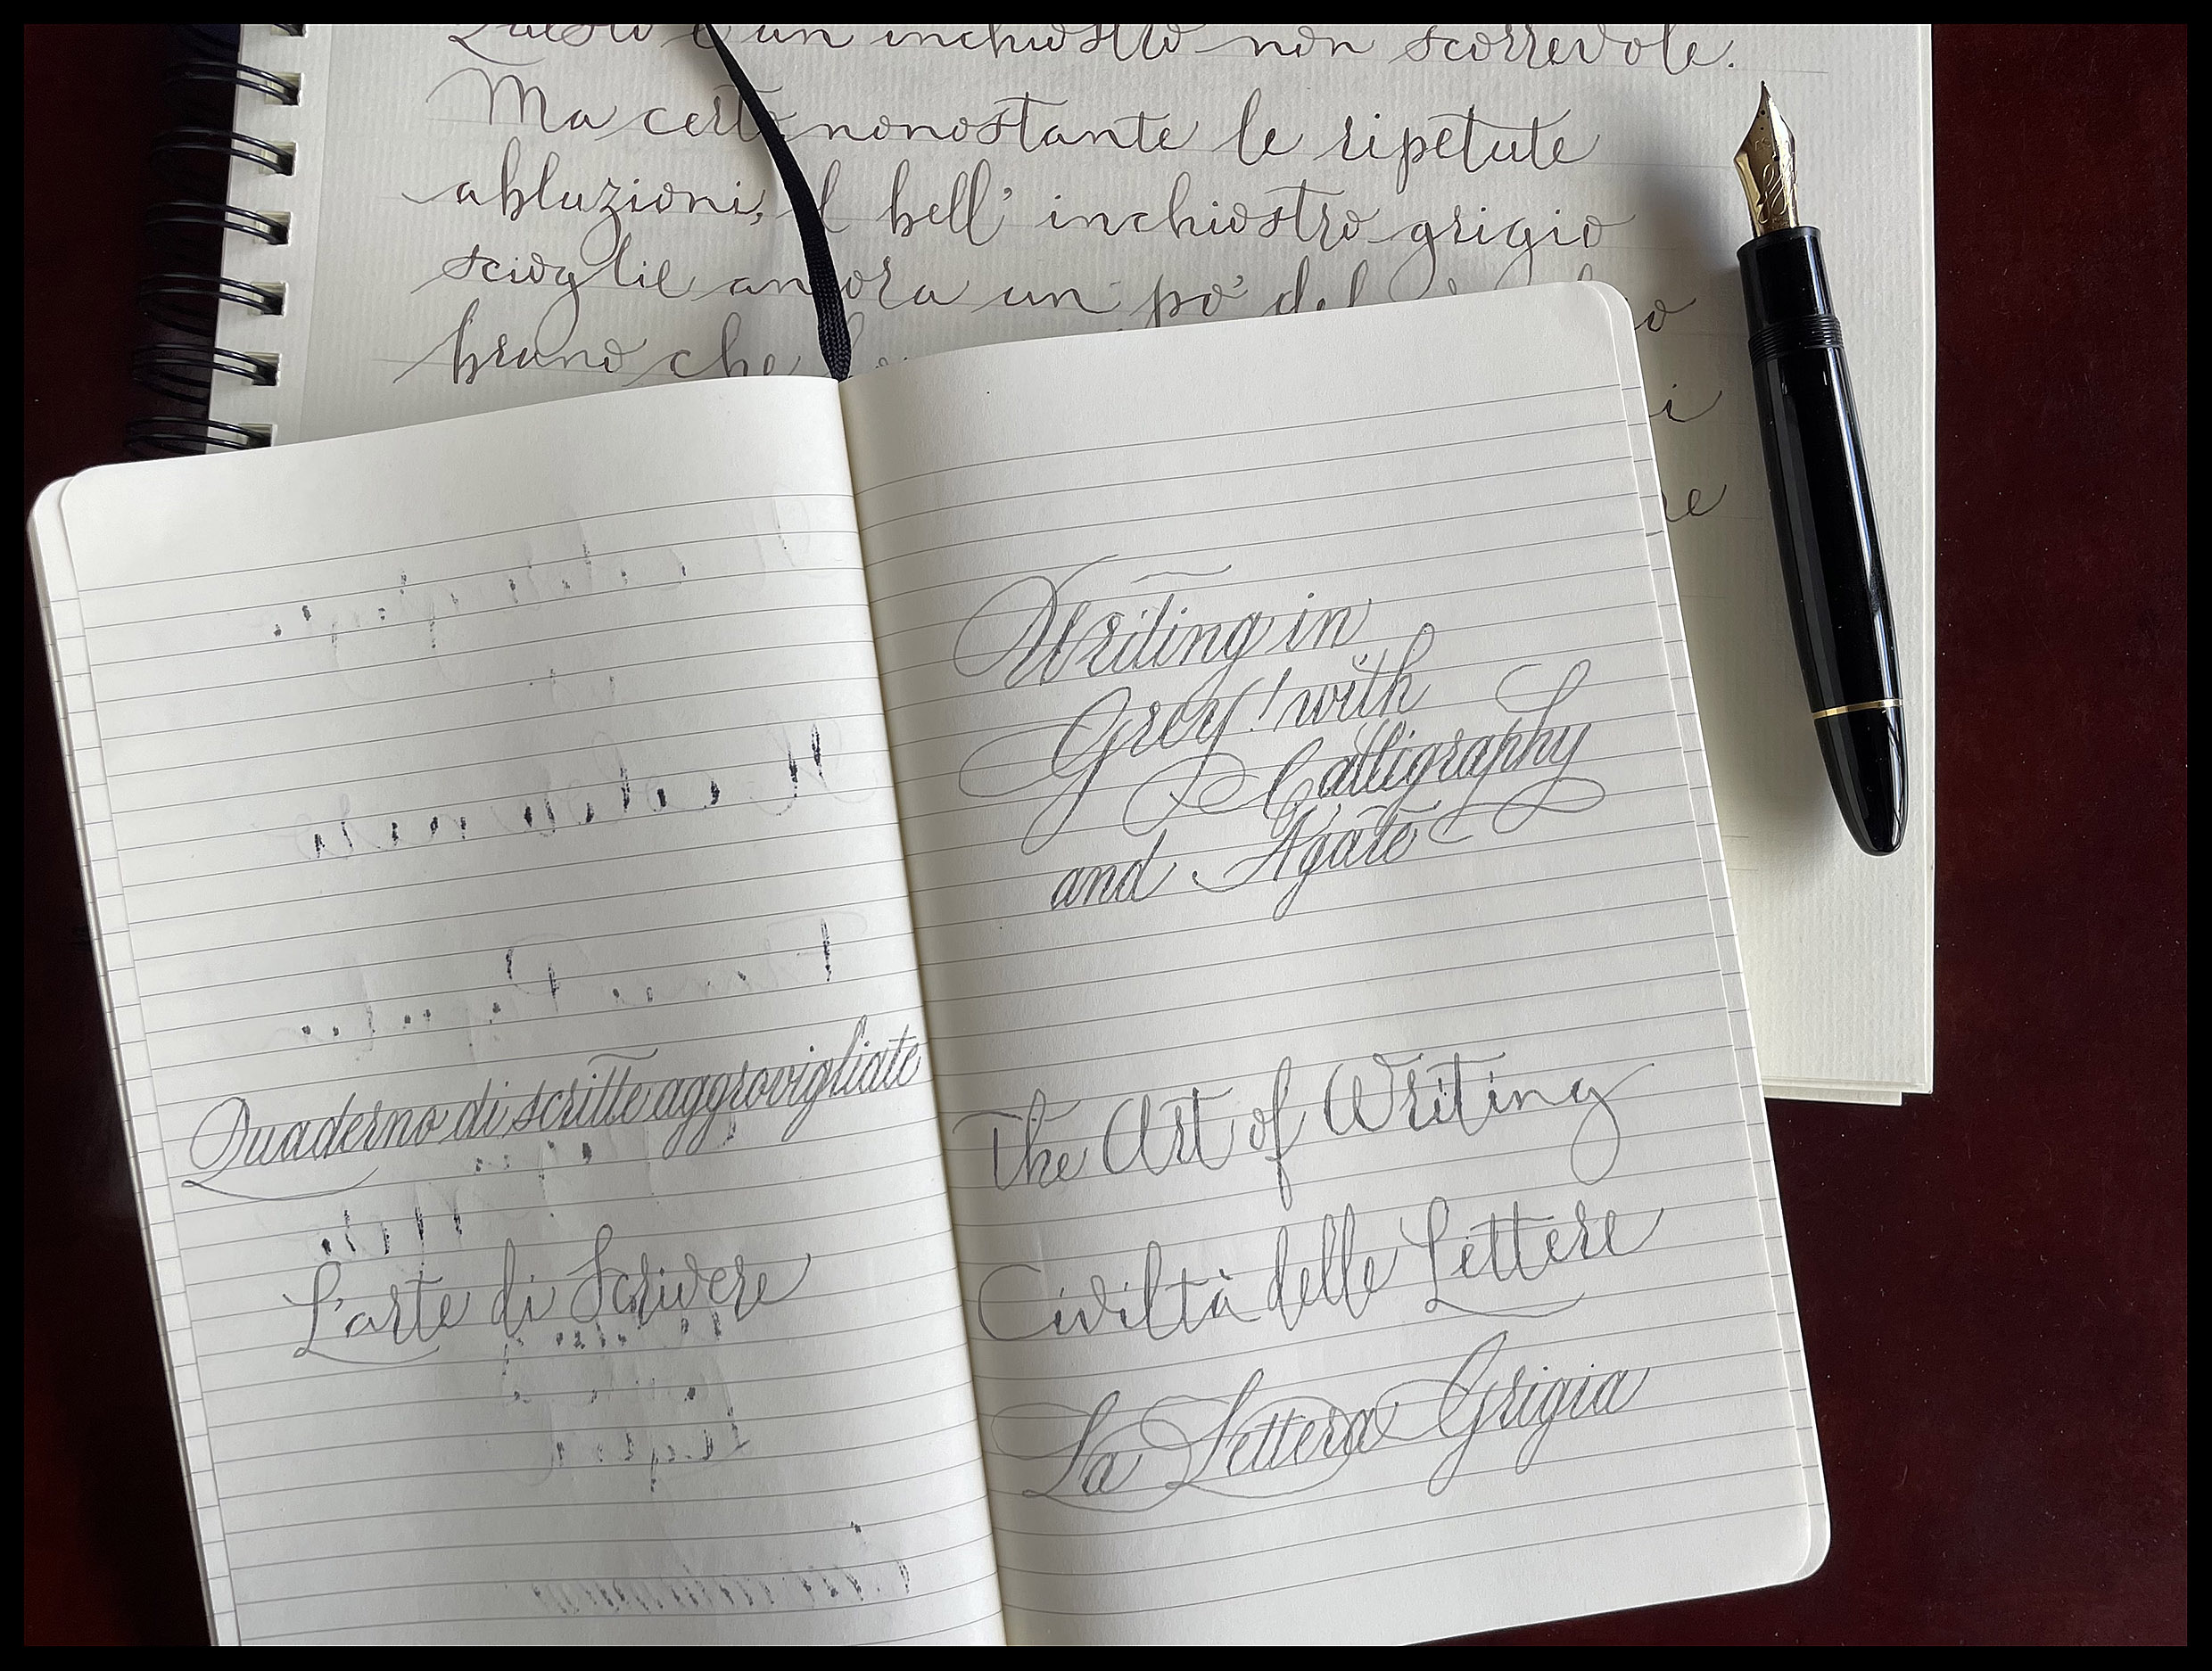 Questo è un inchiostro non scorrevole.
Ma certo nonostante le ripetute
abluzioni, il bell' inchiostro grigio
scioglie ancora un po' del
bruno che
Writing in
Grey! with
Calligraphy
and Agate
Quaderno di scritte aggrovigliate
L'arte di Scrivere
The Art of Writing
Civiltà delle Lettere
La Lettera Grigia